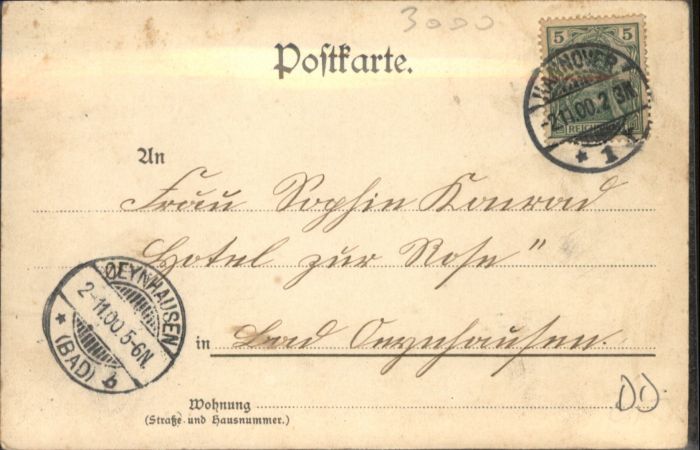 3000
Postkarte.
5 5
HANNOVER
-2.11.00.2-3N
REICHSPOST
* 1 *
An
Frau Sophie Konrad
Hotel zur Rose"
OEYNHAUSEN
2-11.00.5-6N.
* (BAD) b
in Bad Oeynhausen.
Wohnung
(Straße und Hausnummer.)
DD